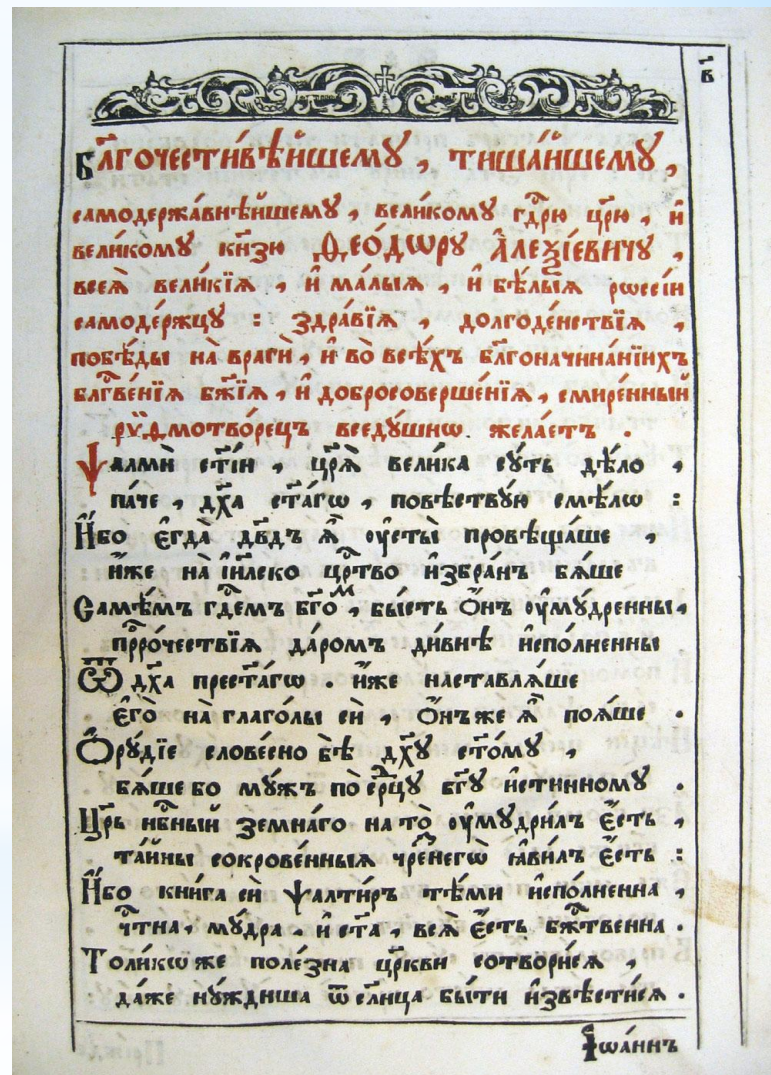 в҃
Бл҃гочести́вѣйшему, тиша́йшему,
самодержа́внѣйшему, вели́кому гд҃рю цр҃ю, и҆
вели́кому кн҃зю Ѳео́дѡру А҆леѯі́евичу,
всея̀ вели́кїѧ, и҆ ма́лыѧ, и҆ бѣ́лыѧ рѡссі́и
самоде́ржцу : здра́вїѧ, долгоде́нствїѧ,
побѣ́ды на̀ врагѝ, и҆ во̀ всѣ́хъ бл҃гоначина́нїихъ
блгⷭ҇ве́нїѧ бж҃їѧ, и҆ добросоверше́нїѧ, смире́нный
риѳмотво́рецъ вседу́шнѡ жела́етъ.
Ѱалмѝ ст҃і́и, цр҃ѧ̀ вели́ка су́ть дѣ́ло,
па́че, дх҃а ст҃а́гѡ, повѣ́ствую смѣ́лѡ :
И҆́бо є҆гда̀ дв҃дъ ѧ҆̀ ѹ҆сты̀ провѣща́ше,
и҆́же на̀ і҆и҃леко црⷭ҇тво и҆збра́нъ бѧ́ше
Самѣ́мъ гдⷭ҇емъ бг҃оⷨ, бы́сть Ѻ҆́нъ ѹ҆му́дренны,
прⷪ҇ро́чествїѧ да́ромъ ди́внѣ и҆спо́лненны
Ѿ дх҃а прест҃а́гѡ. и҆́же наставлѧ́ше
є҆го̀ на̀ глаго́лы сѝ, Ѻ҆́нъ же ѧ҆̀ поѧ́ше.
Ѻ҆рꙋ́дїе слове́сно бѣ̀ дх҃ꙋ ст҃о́мꙋ,
бѧ́ше бо мꙋ́жъ по̀ срⷣцꙋ бг҃ꙋ и҆́стинномꙋ.
Цр҃ь нбⷭ҇ный земна́го на то̀ ѹ҆мꙋдри́лъ є҆́сть,
та́йны сокрове́нныѧ чрⷥ́ негѡ̀ ꙗ҆ви́лъ є҆́сть :
И҆́бо кни́га сѝ ѱалти́рь тѣ́ми и҆спо́лненна,
чⷭ҇тна, мꙋ́дра, и҆ ст҃а, всѧ̀ є҆́сть бжⷭ҇твенна.
Толи́кѡ же поле́зна цр҃кви сотвори́сѧ,
да́же нꙋ́ждиша ѿ сл҃нца бы́ти и҆звѣсти́сѧ.
І҆ѡа́ннъ